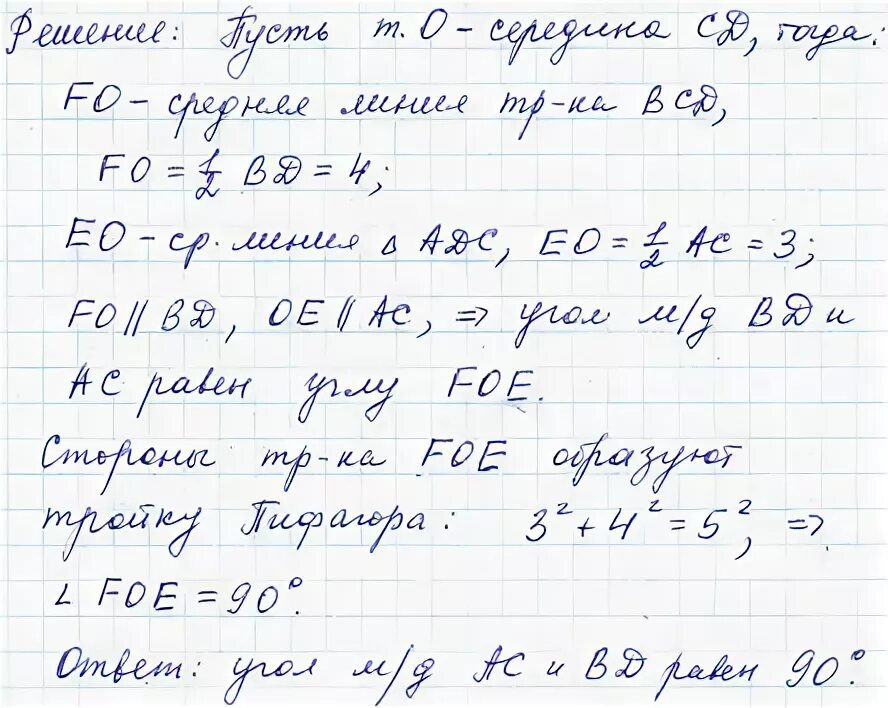 Решение: Пусть т. О - середина СД, тогда:
FO - средняя линия тр-ка ВСД,
FO = 1/2 ВД = 4;
EO - ср. линия △ АДС, EO = 1/2 АС = 3;
FO || ВД, OE || АС, => угол м/д ВД и
АС равен углу FOE.
Стороны тр-ка FOE образуют
тройку Пифагора: 3² + 4² = 5², =>
∠ FOE = 90°.
Ответ: угол м/д АС и ВД равен 90°.